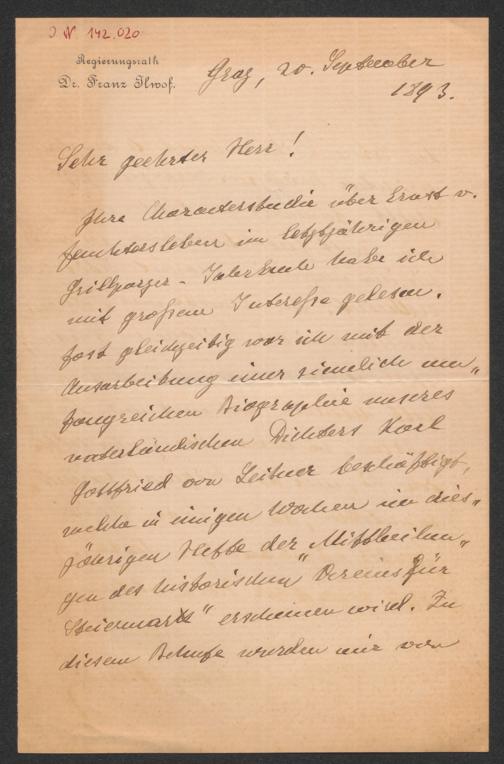 I N 142.020
Regierungsrath
Dr. Franz Ilwof.
Graz, 20. September
1893.
Sehr geehrter Herr!
Ihre Charakterstudie über Ernst v.
Feuchtersleben im letztjährigen
Grillparzer-Jahrbuche habe ich
mit großem Interesse gelesen.
Fast gleichzeitig war ich mit der
Ausarbeitung einer ziemlich um„
fangreichen Biographie unseres
vaterländischen Dichters Karl
Gottfried von Leitner beschäftigt,
welche in einigen Wochen im dies„
jährigen Hefte der „Mittheilun„
gen des historischen Vereins für
Steiermark" erscheinen wird. Zu
diesem Behufe wurden mir von